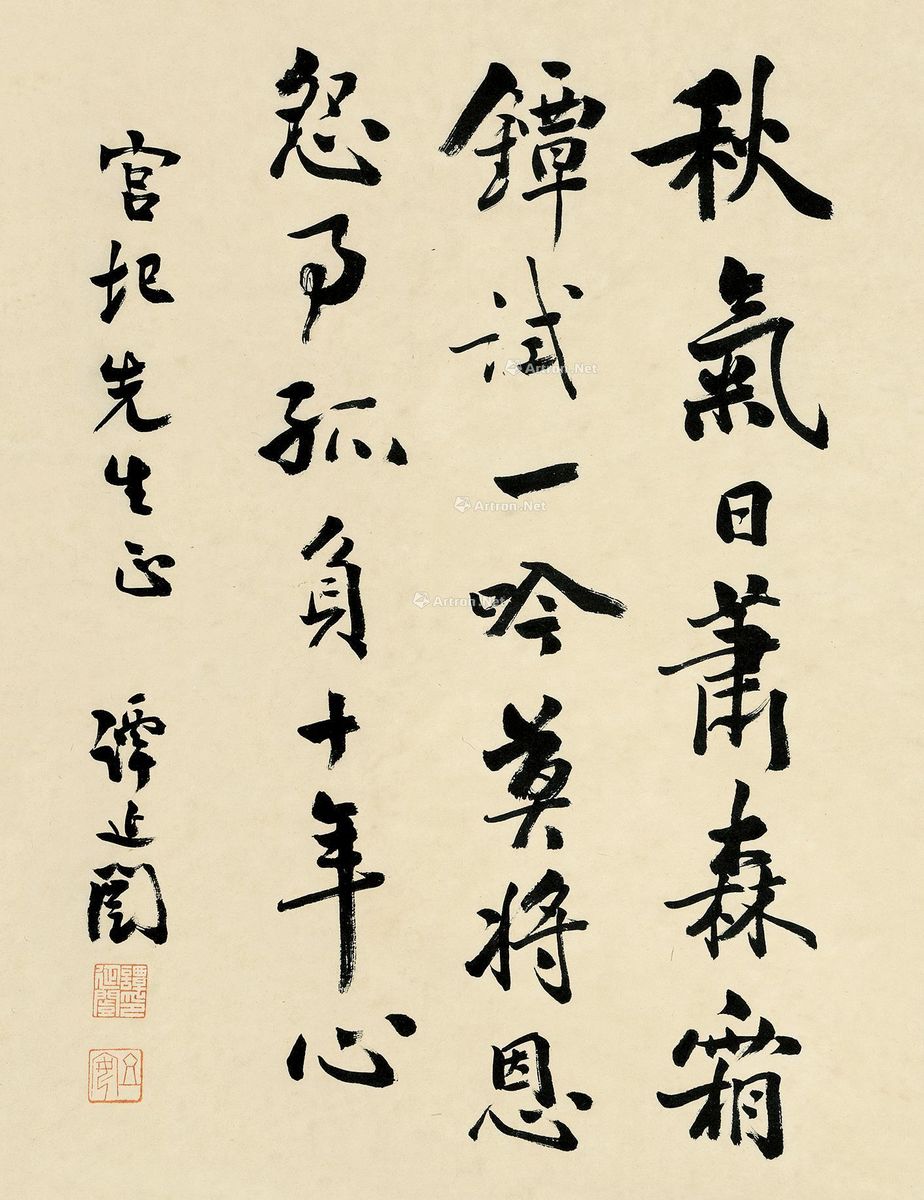 秋氣日蕭森霜
鐔試一吟莫將恩
怨事孤負十年心
宮圯先生正 譚延闓
譚延闓印
Artron.Net
Artron.Net
Artron.Net